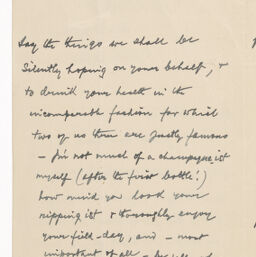 Say the things we shall be
silently hoping on your behalf, &
to drink your health in the
incomparable fashion for which
two of us there are justly famous
— I'm not much of a champagne-ist
myself (after the first bottle!)
how mind you look your
rippingest & thoroughly enjoy
your field-day, and — most
important of all —